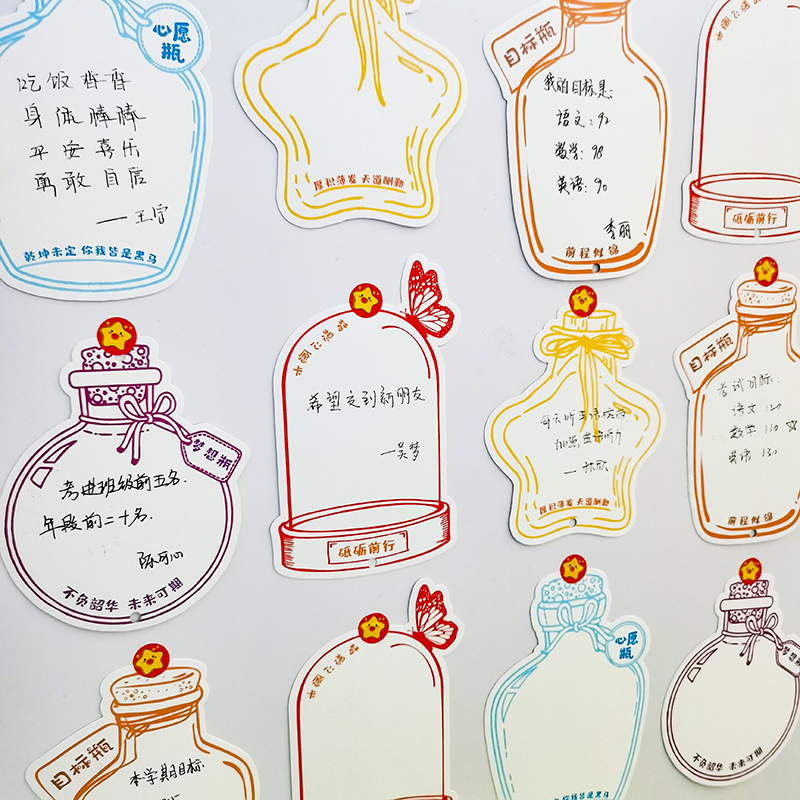 心愿
瓶
吃饭香香
身体棒棒
平安喜乐
勇敢自信
乾坤未定 你我皆是黑马
厚积薄发 天道酬勤
目标瓶
我的目标是:
语文:92
数学:98
英语:90
李丽
前程似锦
砥砺前行
梦想瓶
考进班级前五名.
年段前二十名.
不负韶华 未来可期
希望交到新朋友
—吴梦
砥砺前行
每天听英语
加强英语听力
—林欣
厚积薄发 天道酬勤
目标瓶
考试目标:
语文:120
数学 110
英语:130
前程似锦
目标瓶
本学期目标
心愿
瓶
你我皆是黑马
梦想瓶
不负韶华 未来可期